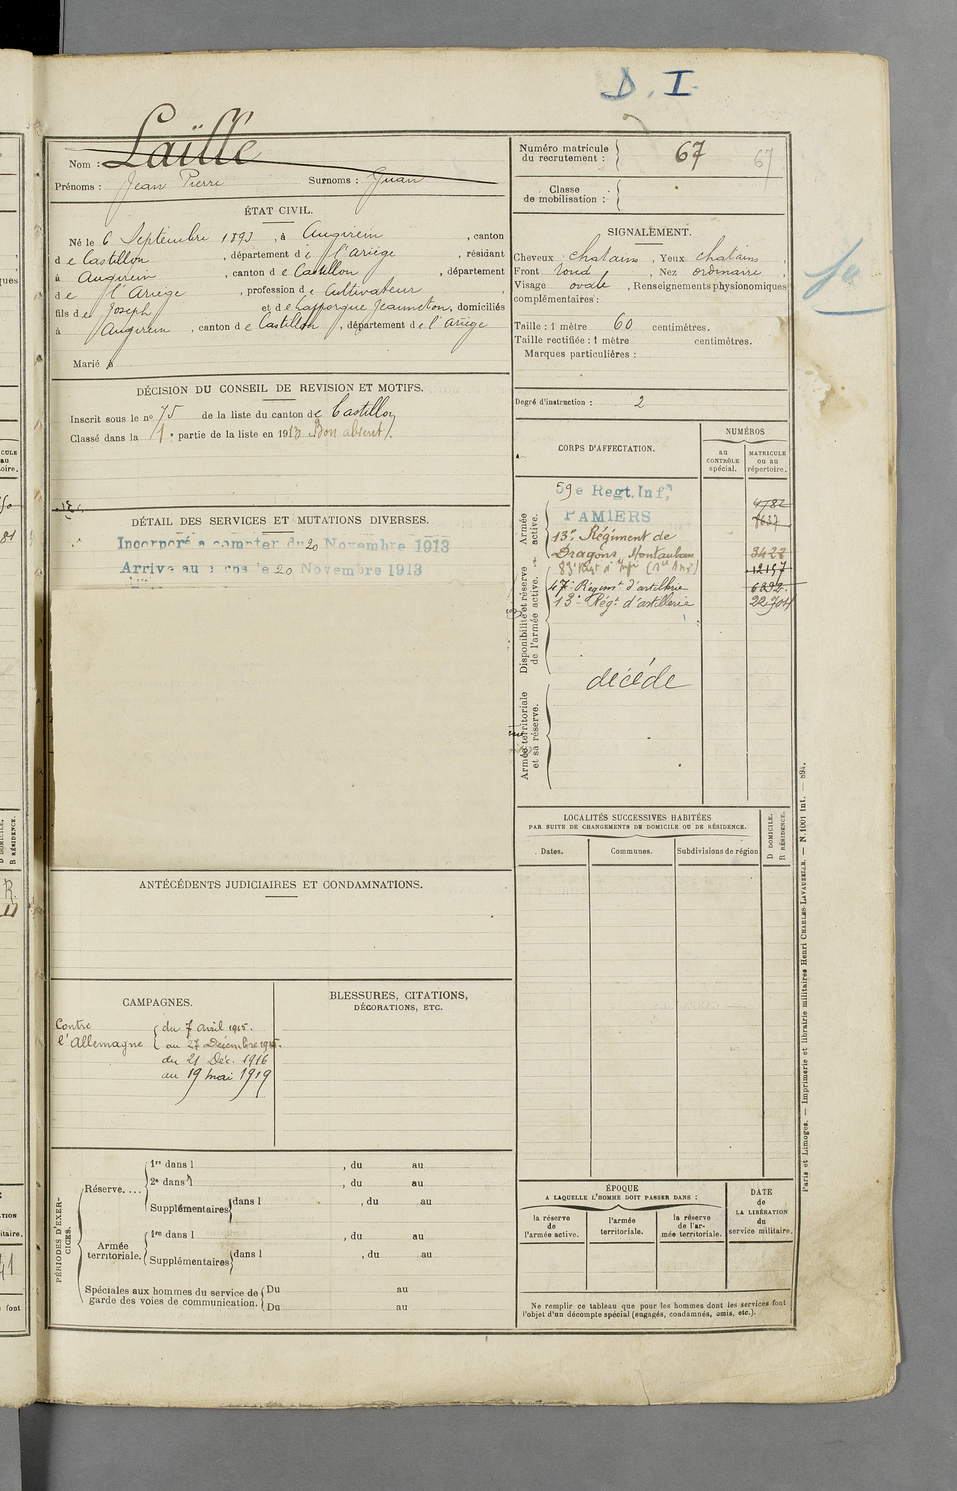 D. I.
Nom : Laïllé
Prénoms : Jean Pierre Surnoms : Juan
Numéro matricule du recrutement : 67 67
Classe de mobilisation :
ÉTAT CIVIL.
Né le 6 Septembre 1893, à Augirein, canton
de Castillon, département de l'Ariège, résidant
à Augirein, canton de Castillon, département
de l'Ariège, profession de Cultivateur,
fils de Joseph et de Lafforgue Jeanneton, domiciliés
à Augirein, canton de Castillon, département de l'Ariège
Marié à
SIGNALEMENT.
Cheveux chatains, Yeux chatains,
Front rond, Nez ordinaire,
Visage ovale, Renseignements physionomiques
complémentaires :
Taille : 1 mètre 60 centimètres.
Taille rectifiée : 1 mètre centimètres.
Marques particulières :
Degré d'instruction : 2
DÉCISION DU CONSEIL DE REVISION ET MOTIFS.
Inscrit sous le no 75 de la liste du canton de Castillon
Classé dans la 1e partie de la liste en 1913 Bon absent).
DÉTAIL DES SERVICES ET MUTATIONS DIVERSES.
Incorporé à compter du 20 Novembre 1913
Arrivé au corps le 20 Novembre 1913
CORPS D'AFFECTATION.
NUMÉROS
au CONTRÔLE spécial.
MATRICULE ou au répertoire.
Armée active.
Disponibilité et réserve de l'armée active.
Armée territoriale et sa réserve.
59e Regt. Inf.
PAMIERS
4782
13e Régiment de
Dragons Montauban 3427
83e Regt d'Infie 12157
47e Regimt d'artillerie 6292
13e Régt d'artillerie 22704
décédé
LOCALITÉS SUCCESSIVES HABITÉES
PAR SUITE DE CHANGEMENTS DE DOMICILE OU DE RÉSIDENCE.
Dates. Communes. Subdivisions de région
D DOMICILE.
R RÉSIDENCE.
ANTÉCÉDENTS JUDICIAIRES ET CONDAMNATIONS.
CAMPAGNES.
Contre l'Allemagne
du 7 Avril 1915.
au 27 Décembre 1915.
du 21 Déc. 1916
au 19 mai 1919
BLESSURES, CITATIONS,
DÉCORATIONS, ETC.
PÉRIODES D'EXERCICES.
Réserve....
1re dans l , du au
2e dans l , du au
Supplémentaires dans l , du au
Armée territoriale.
1re dans l , du au
Supplémentaires dans l , du au
Spéciales aux hommes du service de garde des voies de communication.
Du au
Du au
ÉPOQUE
A LAQUELLE L'HOMME DOIT PASSER DANS :
la réserve de l'armée active.
l'armée territoriale.
la réserve de l'armée territoriale.
DATE de LA LIBÉRATION du service militaire.
Ne remplir ce tableau que pour les hommes dont les services font
l'objet d'un décompte spécial (engagés, condamnés, omis, etc.).
Paris et Limoges. — Imprimerie et librairie militaires Henri CHARLES-LAVAUZELLE. — N. 1001 Int. — 894.